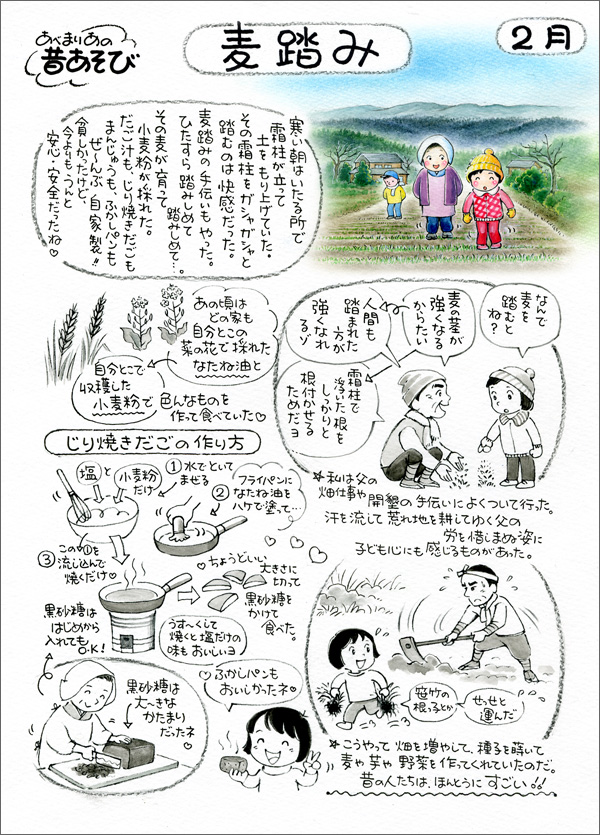 あべまりあの
昔あそび
麦踏み
2月
寒い朝はいたる所で
霜柱が立って
土をもり上げていた。
その霜柱をガシャガシャと
踏むのは快感だった。
麦踏みの手伝いもやった。
ひたすら踏みしめて
踏みしめて…。
その麦が育って
小麦粉が採れた。
だご汁も、じり焼きだごも
まんじゅうも、ふかしパンも
ぜ〜んぶ、自家製!!
貧しかったけど、
今よりも、うんと
安心・安全だったね♡
なんで
麦を
踏むと
ね?
麦の茎が
強くなる
からたい
人間も
踏まれた
方が
強くなれ
るゾ
霜柱で
浮いた根を
しっかりと
根付かせる
ためだヨ
あの頃は
どの家も
自分とこの
菜の花で採れた
なたね油と
自分とこで
収穫した
小麦粉で
色んなものを
作って食べていた♡
★私は父の
畑仕事や
開墾の手伝いによくついて行った。
汗を流して荒れ地を耕してゆく父の
労を惜しまぬ姿に
子ども心にも感じるものがあった。
じり焼きだごの作り方
塩と
小麦粉
だけ
①水でといて
まぜる
②フライパンに
なたね油を
ハケで塗って…
③この①を
流し込んで
焼くだけ♡
♡ちょうどいい
大きさに
切って
黒砂糖を
かけて
食べた。
黒砂糖は
はじめから
入れても
O.K!
うす〜くして
焼くと塩だけの
味もおいしいヨ
黒砂糖は
大〜きな
かたまり
だったネ
♡ふかしパンも
おいしかったネ♡
笹竹の
根っことか
せっせと
運んだ
★こうやって畑を増やして、種子を蒔いて
麦や芋や野菜を作ってくれていたのだ。
昔の人たちは、ほんとうにすごい!!